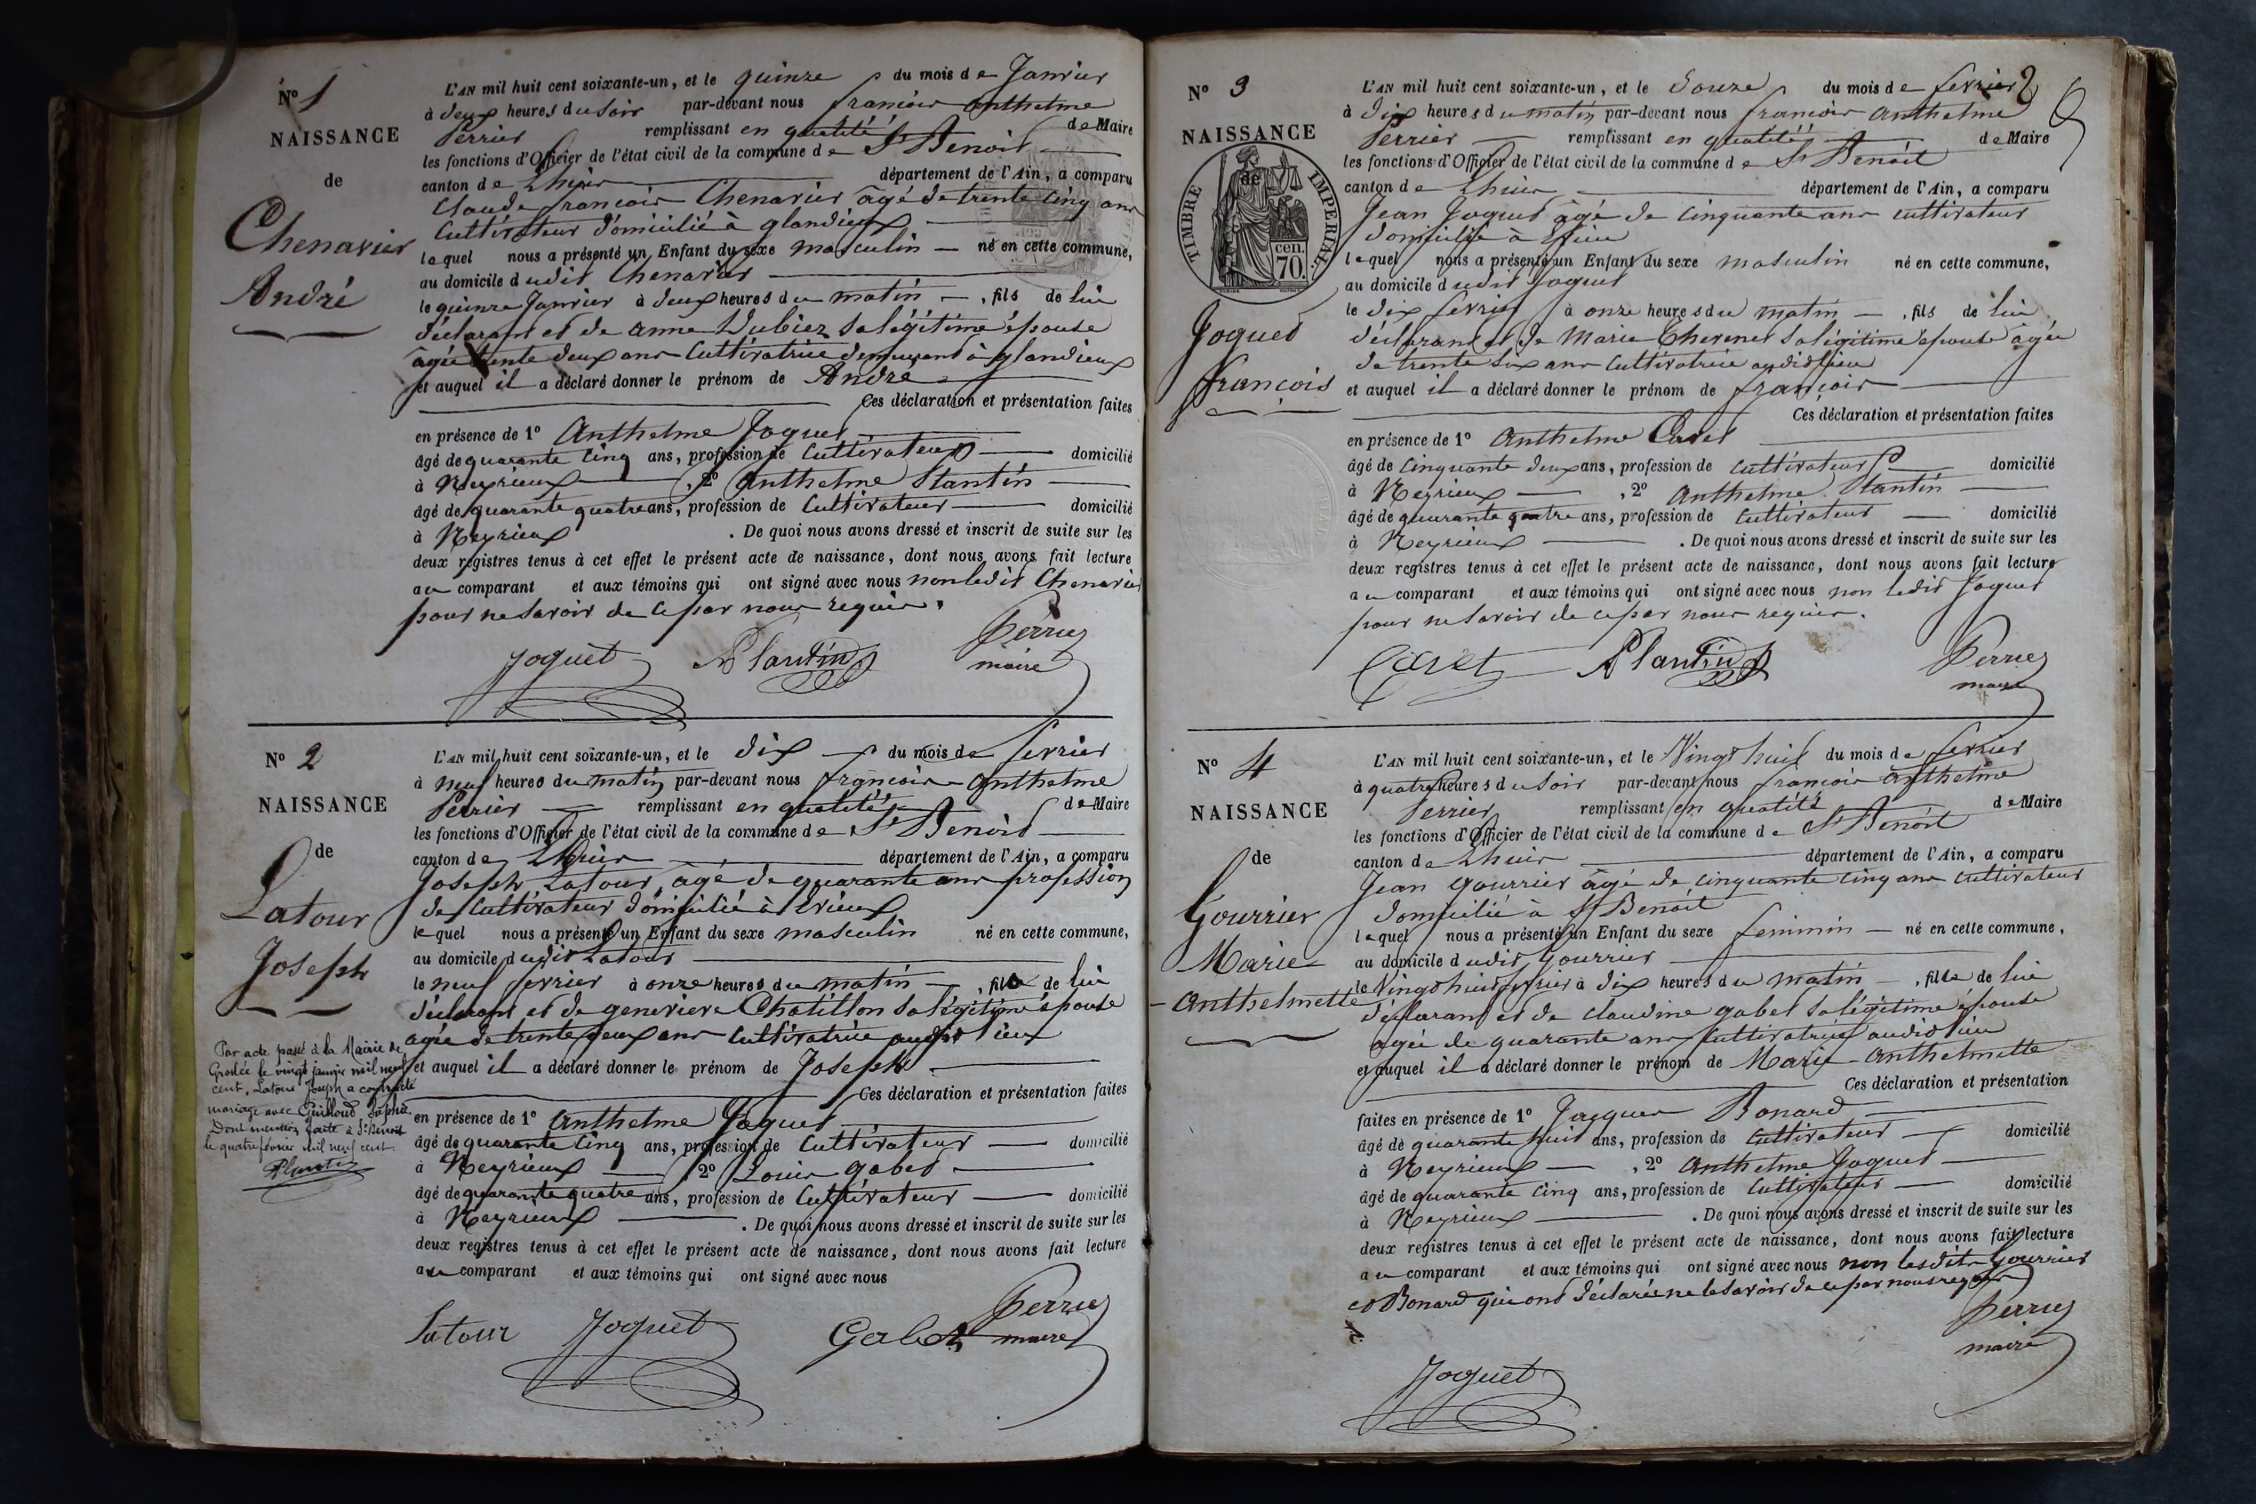 N° 1
NAISSANCE
de
Chenavier
André
L'AN mil huit cent soixante-un, et le quinze du mois de Janvier
à deux heures du soir par-devant nous françois anthelme
Perrier remplissant en qualité de Maire
les fonctions d'Officier de l'état civil de la commune de St Benoit
canton de Lhuis département de l'Ain, a comparu
Claude françois Chenavier âgé de trente cinq ans
cultivateur domicilié à glandieux
lequel nous a présenté un Enfant du sexe masculin né en cette commune,
au domicile dudit Chenavier
le quinze Janvier à deux heures du matin, fils de lui
déclarant et de anne Dubiez sa légitime épouse
âgée trente deux ans cultivatrice demeurant à glandieux
et auquel il a déclaré donner le prénom de André
Ces déclaration et présentation faites
en présence de 1° Anthelme Joguet
âgé de quarante cinq ans, profession de cultivateur domicilié
à Neyrieux, 2° Anthelme Plantin
âgé de quarante quatre ans, profession de cultivateur domicilié
à Neyrieux. De quoi nous avons dressé et inscrit de suite sur les
deux registres tenus à cet effet le présent acte de naissance, dont nous avons fait lecture
au comparant et aux témoins qui ont signé avec nous non ledit Chenavier
pour ne savoir de ce par nous requis.
Joguet APlantin Perrier
maire
N° 2
NAISSANCE
de
Latour
Joseph
Par acte passé à la Mairie de
Groslée le vingt janvier mil neuf
cent, Latour Joseph a contracté
mariage avec Guilloud
Dont mention faite à St Benoit
le quatre février mil neuf cent
L'AN mil huit cent soixante-un, et le dix du mois de fevrier
à neuf heures du matin par-devant nous françois anthelme
Perrier remplissant en qualité de Maire
les fonctions d'Officier de l'état civil de la commune de St Benoit
canton de Lhuis département de l'Ain, a comparu
Joseph Latour, âgé de quarante ans profession
de cultivateur domicilié à Evieux
lequel nous a présenté un Enfant du sexe masculin né en cette commune,
au domicile dudit Latour
le neuf fevrier à onze heures du matin, fils de lui
déclarant et de genevieve Chatillon sa légitime épouse
agée de trente deux ans cultivatrice audit lieu
et auquel il a déclaré donner le prénom de Joseph.
Ces déclaration et présentation faites
en présence de 1° Anthelme Joguet
âgé de quarante cinq ans, profession de cultivateur domicilié
à Neyrieux, 2° Louis gabet
âgé de quarante quatre ans, profession de cultivateur domicilié
à Neyrieux. De quoi nous avons dressé et inscrit de suite sur les
deux registres tenus à cet effet le présent acte de naissance, dont nous avons fait lecture
au comparant et aux témoins qui ont signé avec nous
Latour Joguet Gabet Perrier
maire
N° 3
NAISSANCE
de
TIMBRE IMPERIAL
cen.
70.
Joguet
françois
L'AN mil huit cent soixante-un, et le douze du mois de fevrier 2
à dix heures du matin par-devant nous françois anthelme
Perrier remplissant en qualité de Maire
les fonctions d'Officier de l'état civil de la commune de St Benoit
canton de Lhuis département de l'Ain, a comparu
Jean Joguet âgé de cinquante ans cultivateur
domicilié à Evieu
lequel nous a présenté un Enfant du sexe masculin né en cette commune,
au domicile dudit Joguet
le dix fevrier à onze heures du matin, fils de lui
déclarant et de Marie Thevenet sa légitime épouse âgée
de trente six ans cultivatrice audit lieu
et auquel il a déclaré donner le prénom de françois
Ces déclaration et présentation faites
en présence de 1° Anthelme Caret
âgé de cinquante deux ans, profession de cultivateur domicilié
à Neyrieux, 2° Anthelme Plantin
âgé de quarante quatre ans, profession de cultivateur domicilié
à Neyrieux. De quoi nous avons dressé et inscrit de suite sur les
deux registres tenus à cet effet le présent acte de naissance, dont nous avons fait lecture
au comparant et aux témoins qui ont signé avec nous non ledit Joguet
pour ne savoir de ce par nous requis.
Caret APlantin Perrier
maire
N° 4
NAISSANCE
de
Gourrier
Marie
Anthelmette
L'AN mil huit cent soixante-un, et le Vingt huit du mois de fevrier
à quatre heures du soir par-devant nous françois anthelme
Perrier remplissant en qualité de Maire
les fonctions d'Officier de l'état civil de la commune de St Benoit
canton de Lhuis département de l'Ain, a comparu
Jean gourrier âgé de cinquante cinq ans cultivateur
domicilié à St Benoit
lequel nous a présenté un Enfant du sexe feminin né en cette commune,
au domicile dudit gourrier
le Vingt huit fevrier à dix heures du matin, fille de lui
déclarant et de claudine gabet sa légitime épouse
agée de quarante ans cultivatrice audit lieu
et auquel il a déclaré donner le prénom de Marie Anthelmette
Ces déclaration et présentation
faites en présence de 1° Jacques Bonard
âgé de quarante huit ans, profession de cultivateur domicilié
à Neyrieux, 2° Anthelme Joguet
âgé de quarante cinq ans, profession de cultivateur domicilié
à Neyrieux. De quoi nous avons dressé et inscrit de suite sur les
deux registres tenus à cet effet le présent acte de naissance, dont nous avons fait lecture
au comparant et aux témoins qui ont signé avec nous non lesdits Gourrier
et Bonard qui ont déclaré ne le savoir de ce par nous requis
Perrier
maire
Joguet